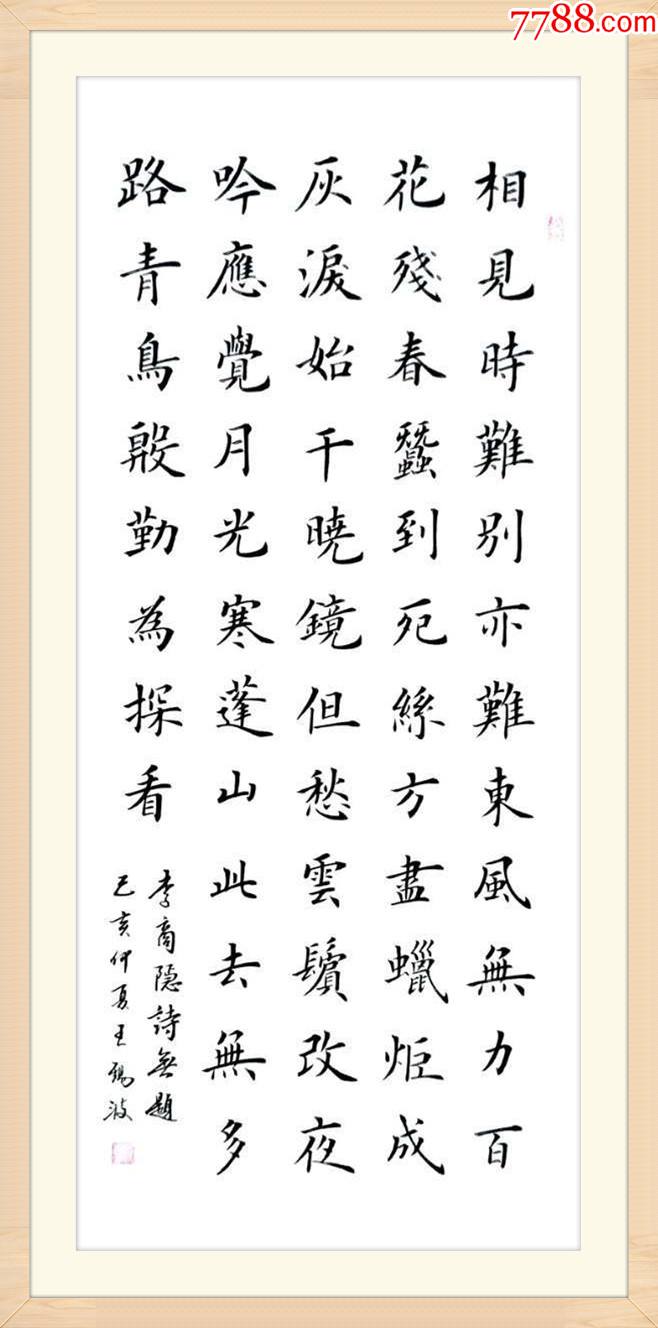 7788.com
相見時難別亦難東風無力百
花殘春蠶到死絲方盡蠟炬成
灰淚始干曉鏡但愁雲鬢改夜
吟應覺月光寒蓬山此去無多
路青鳥殷勤為探看
李商隱詩無題
己亥仲夏王錫波